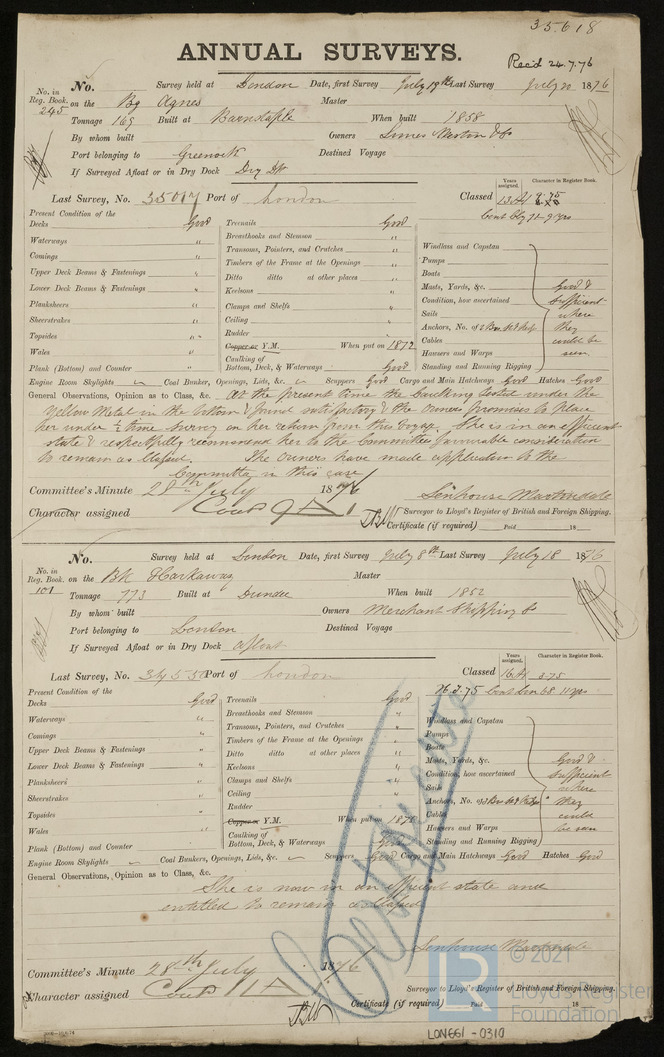 35618
ANNUAL SURVEYS.
Recd 24.7.76
No. Survey held at London Date, first Survey July 19th Last Survey July 20 1876
No. in Reg. Book. 245 on the Bg Agnes Master
Tonnage 169 Built at Barnstaple When built 1858
By whom built Owners
Port belonging to Greenock Destined Voyage
If Surveyed Afloat or in Dry Dock Dry Dk
Last Survey, No. 35017 Port of London Classed
Years assigned. Character in Register Book.
13 A1 9.75
Present Condition of the
Decks Good
Waterways "
Comings "
Upper Deck Beams & Fastenings "
Lower Deck Beams & Fastenings "
Planksheers "
Sheerstrakes "
Topsides "
Wales "
Plank (Bottom) and Counter "
Treenails Good
Breasthooks and Stemson "
Transoms, Pointers, and Crutches "
Timbers of the Frame at the Openings "
Ditto ditto at other places "
Keelsons "
Clamps and Shelfs "
Ceiling "
Rudder "
Copper or Y.M. When put on 1872
Caulking of Bottom, Deck, & Waterways Good
Windlass and Capstan
Pumps
Boats
Masts, Yards, &c. Good &
Condition, how ascertained sufficient
Sails where
Anchors, No. of they
Cables could be
Hawsers and Warps seen
Standing and Running Rigging
Engine Room Skylights Coal Bunkers, Openings, Lids, &c. Scuppers Good Cargo and Main Hatchways Good Hatches Good
General Observations, Opinion as to Class, &c. At the present time the Caulking tested under the
Yellow Metal in the bottom & found satisfactory & the owners promises to place
her under ½ time survey on her return from this voyage. She is in an efficient
state & respectfully recommend her to the Committees favourable consideration
to remain as Classed. The Owners have made application to the
Committee in this case
Committee's Minute 28th July 1876
Senhouse Martindale
Character assigned Cont 9 A1
Surveyor to Lloyd's Register of British and Foreign Shipping.
Certificate (if required) Paid 18
No. Survey held at London Date, first Survey July 8th Last Survey July 18 1876
No. in Reg. Book. 101 on the Bk Harkaway Master
Tonnage 773 Built at Dundee When built 1852
By whom built Owners Merchant Shipping Co
Port belonging to London Destined Voyage
If Surveyed Afloat or in Dry Dock Afloat
Last Survey, No. 34550 Port of London Classed
Years assigned. Character in Register Book.
3.75
Present Condition of the
Decks Good
Waterways "
Comings "
Upper Deck Beams & Fastenings "
Lower Deck Beams & Fastenings "
Planksheers "
Sheerstrakes "
Topsides "
Wales "
Plank (Bottom) and Counter "
Treenails Good
Breasthooks and Stemson "
Transoms, Pointers, and Crutches "
Timbers of the Frame at the Openings "
Ditto ditto at other places "
Keelsons "
Clamps and Shelfs "
Ceiling "
Rudder "
Copper or Y.M. When put on
Caulking of Bottom, Deck, & Waterways Good
Windlass and Capstan
Pumps
Boats
Masts, Yards, &c. Good &
Condition, how ascertained sufficient
Sails where
Anchors, No. they
Cables could
Hawsers and Warps be seen
Standing and Running Rigging
Engine Room Skylights Coal Bunkers, Openings, Lids, &c. Scuppers Good Cargo and Main Hatchways Good Hatches Good
General Observations, Opinion as to Class, &c.
She is now in an efficient state and
entitled to remain as Classed
Senhouse Martindale
Committee's Minute 28th July 1876
Character assigned Cont 11 A1
Surveyor to Lloyd's Register of British and Foreign Shipping.
Certificate (if required) Paid 18
© 2021
LR Lloyd's Register
Foundation
LON661-0310